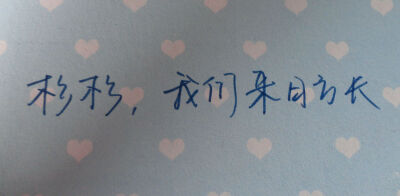 杉杉，我们来日方长